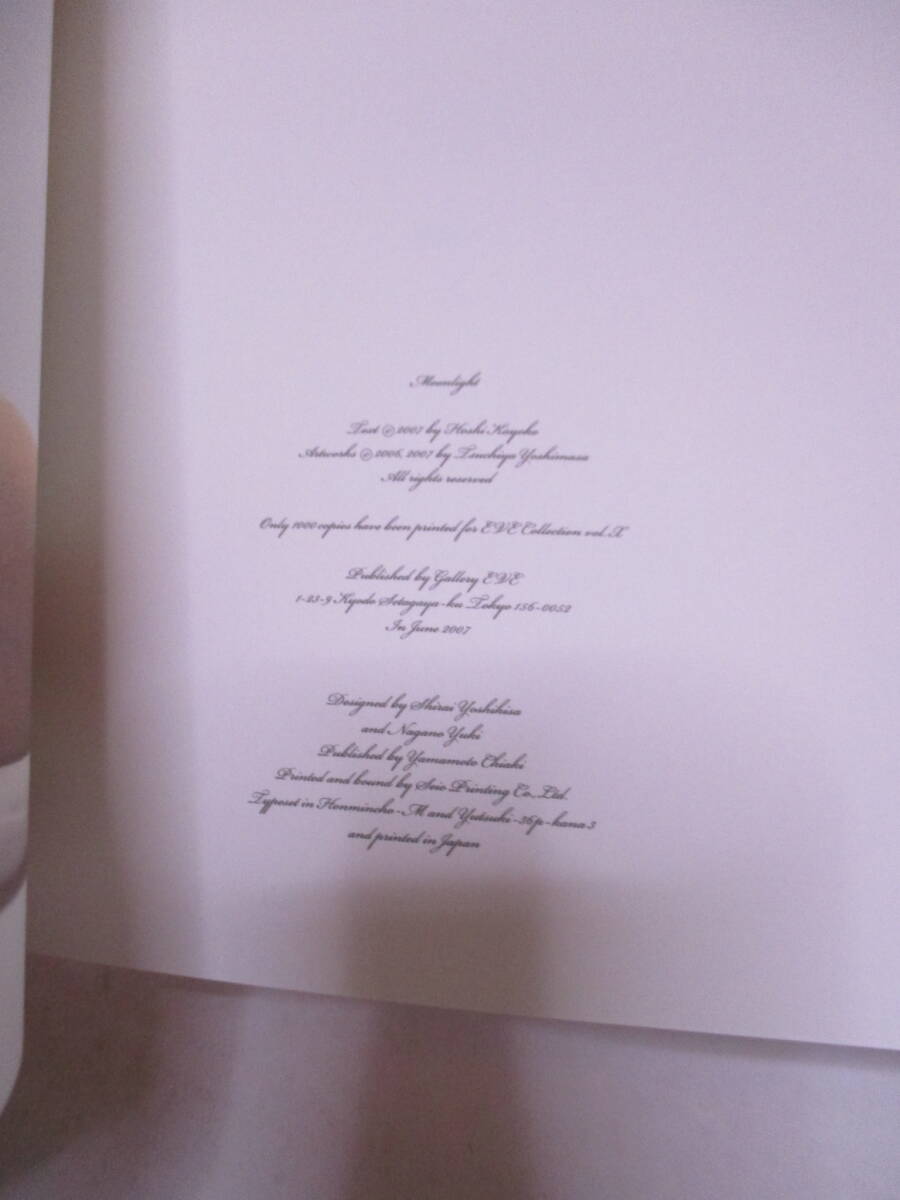 Moonlight
Text ©2007 by Hoshi Kayoko
Artworks ©2006, 2007 by Tsuchiya Yoshimasa
All rights reserved
Only 1000 copies have been printed for EVE Collection vol. X
Published by Gallery EVE
1-23-9 Kyodo Setagaya-ku Tokyo 156-0052
In June 2007
Designed by Shirai Yoshihisa
and Nagano Yuki
Published by Yamamoto Chiaki
Printed and bound by Seio Printing Co., Ltd.
Typeset in Honmincho-M and Yutsuki-36p-kana 3
and printed in Japan